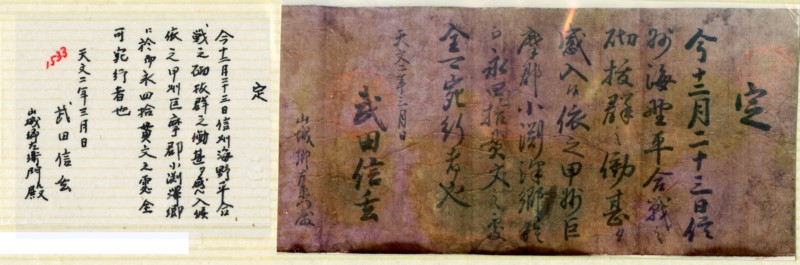 定
今十二月二十三日信
州海野平合戦之
砌抜群之働甚タ
感入候依之甲州巨
摩郡小渕澤郷於
永四拾貫文之處
全可宛行者也
天文二年三月日
武田信玄
山城郷左衛門殿
定
今十二月二十三日信州海野平合
戦之砌抜群之働甚タ感入候
依之甲州巨摩郡小渕澤郷
ニ於而永四拾貫文之處全
可宛行者也
1533
天文二年三月日
武田信玄
山城郷左衛門殿